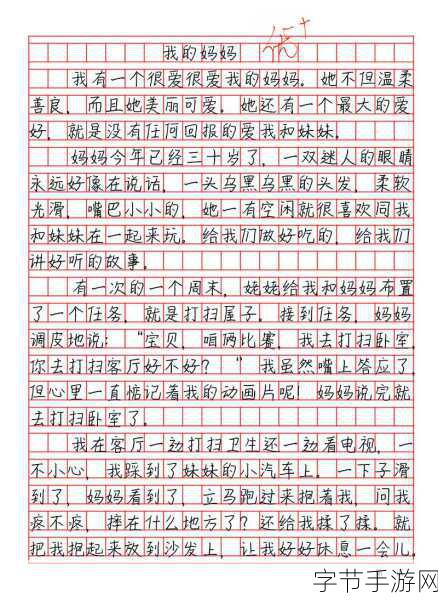 我的妈妈
优+
我有一个很爱很爱我的妈妈。她不但温柔
善良，而且她美丽可爱。她还有一个最大的爱
好，就是没有任何回报的爱我和妹妹。
妈妈今年已经三十岁了，一双迷人的眼睛
永远好像在说话，一头乌黑乌黑的头发，柔软
光滑，嘴巴小小的，她一有空闲就很喜欢同我
和妹妹在一起来玩。给我们做好吃的，给我们
讲好听的故事。
有一次的一个周末，姥姥给我和妈妈布置
了一个任务，就是打扫屋子。接到任务，妈妈
调皮地说：“宝贝，咱俩比赛，我去打扫卧室，
你去打扫客厅好不好？”我虽然嘴上答应了，
但心里一直惦记着我的动画片呢！妈妈说完就
去打扫卧室了。
我在客厅一边打扫卫生还一边看电视，一
不小心，我踩到了妹妹的小汽车上。一下子滑
到了，妈妈看到了，立马跑过来抱着我，问我
疼不疼，摔在什么地方了？还给我揉了揉。就
把我抱起来放到沙发上，让我好好休息一会儿。
字节手游网